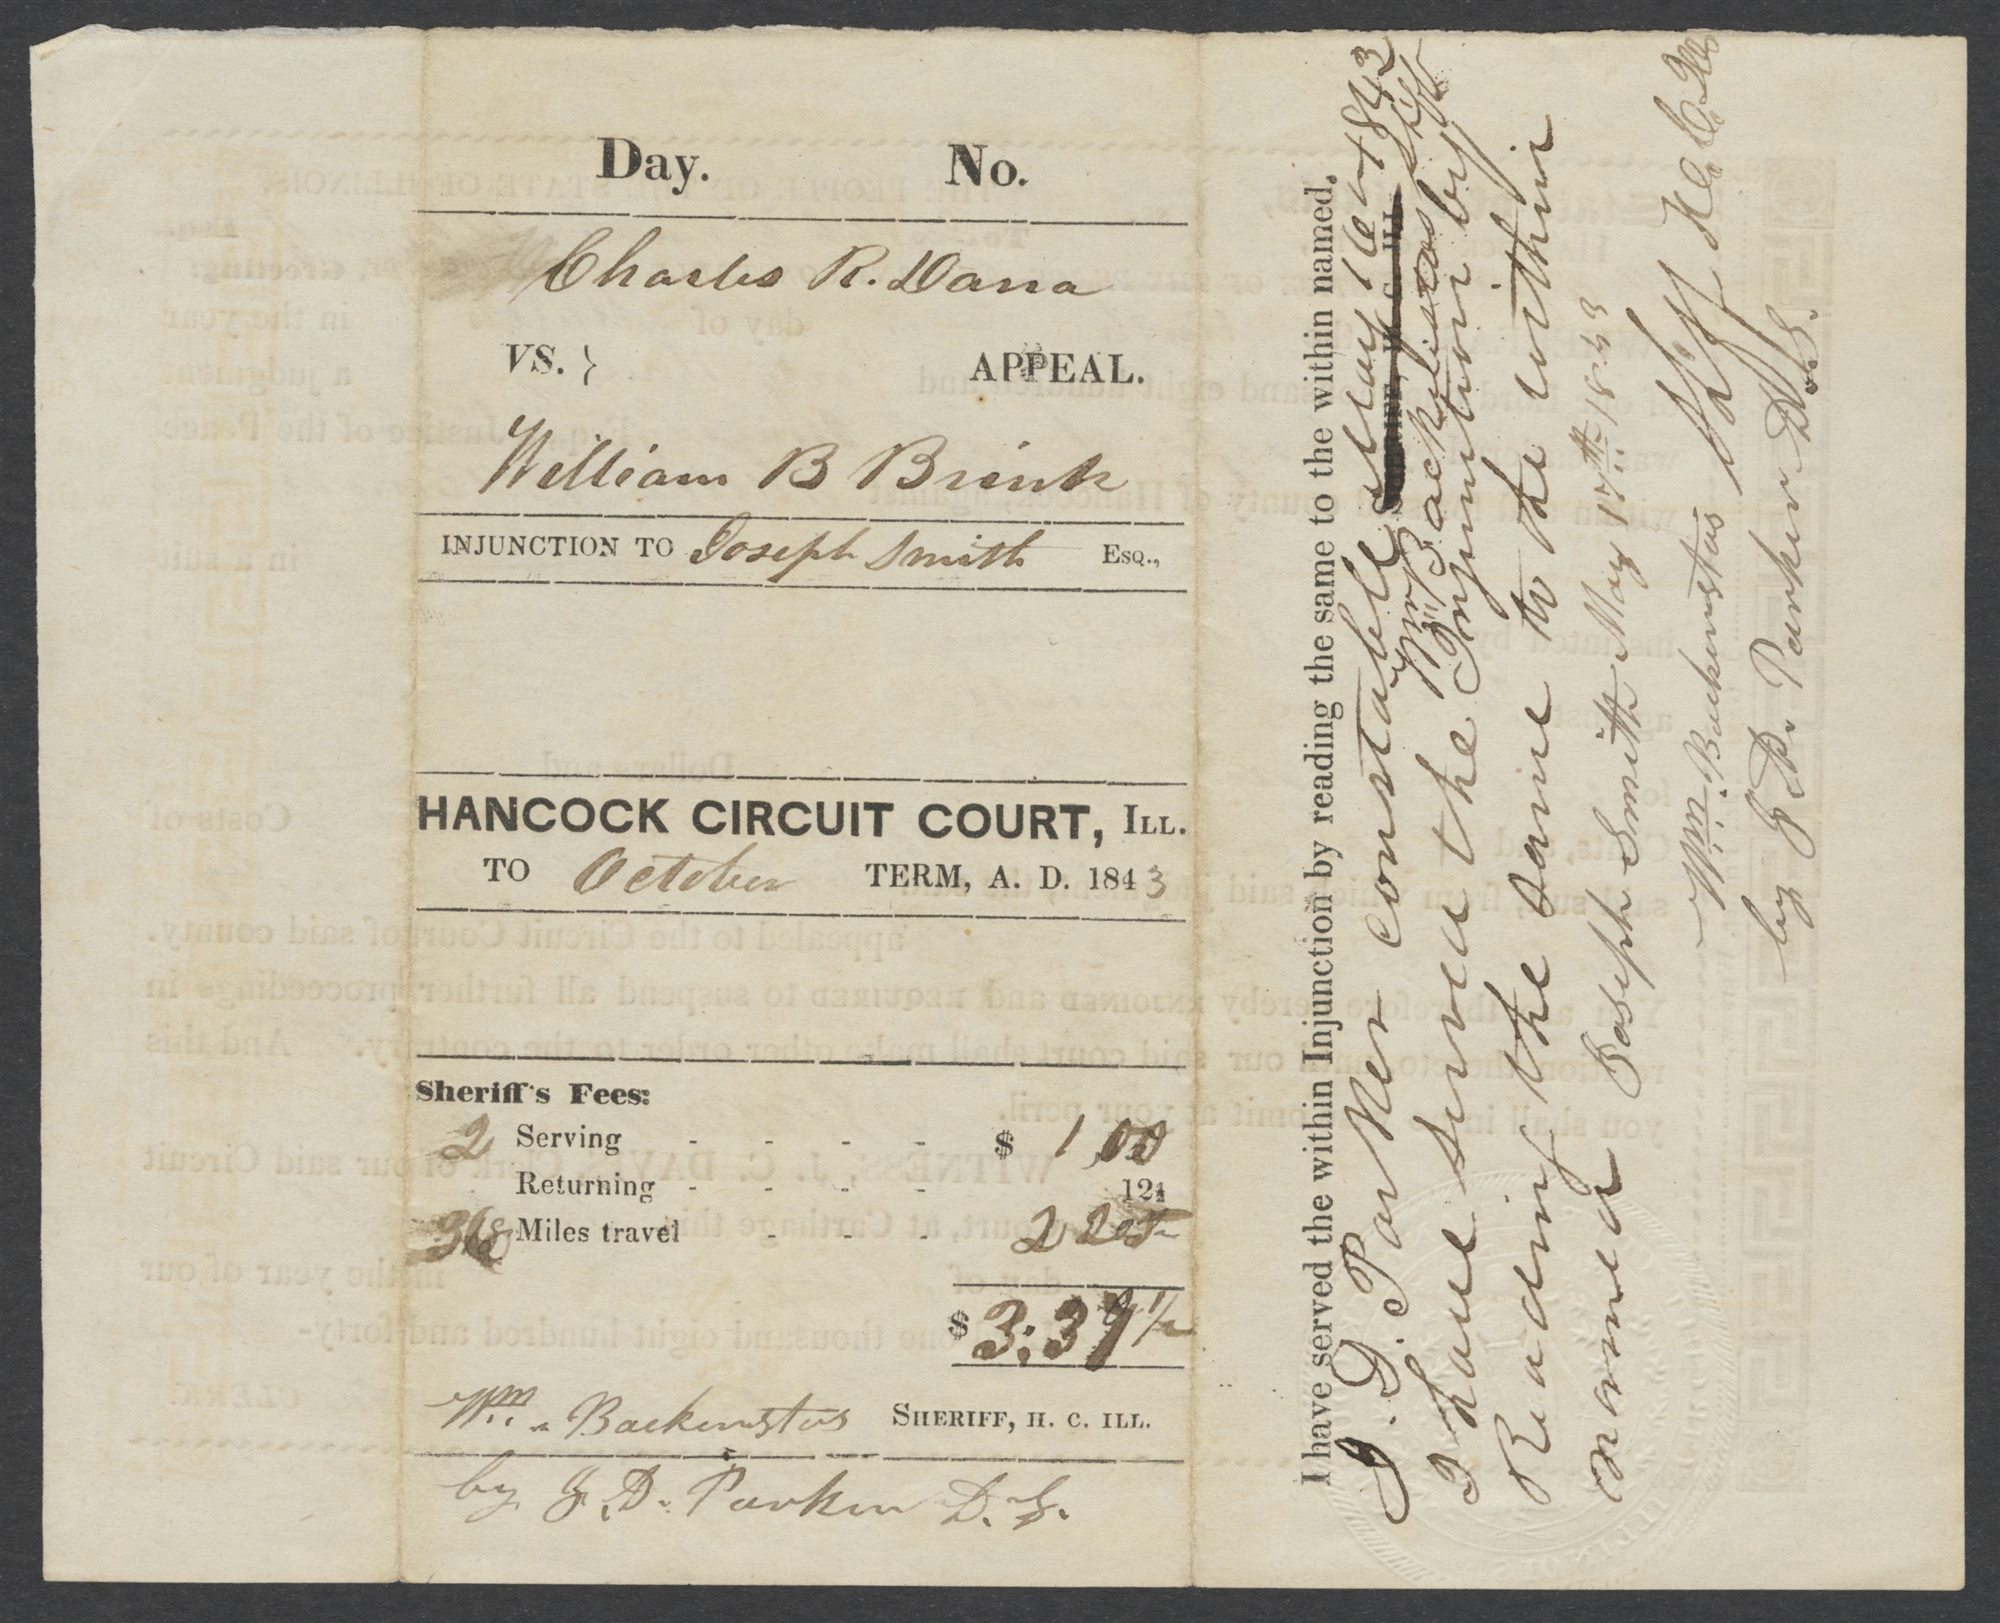 Day. No.
Charles R. Dana
VS. } APPEAL.
William B Brink
INJUNCTION TO Joseph Smith Esq.,
HANCOCK CIRCUIT COURT, ILL.
TO October TERM, A. D. 1843
Sheriff's Fees:
2 Serving - - - - $ 1,00
Returning - - - - 12½
36 Miles travel - - - 2 25
$ 3:37½
Wm. Backenstos SHERIFF, H. C. ILL.
by J. D. Parker D. S.
I have served the within Injunction by reading the same to the within named.
J. D. Parker constable May 16th 1843
SHERIFF, H. C. ILL.
Wm Backenstos Shff
I have served the Injunction by
Reading the same to the within
named Joseph Smith May 17th 1843
Wm. Backenstos Shff H. C. Ills
by J D. Parker D. S.